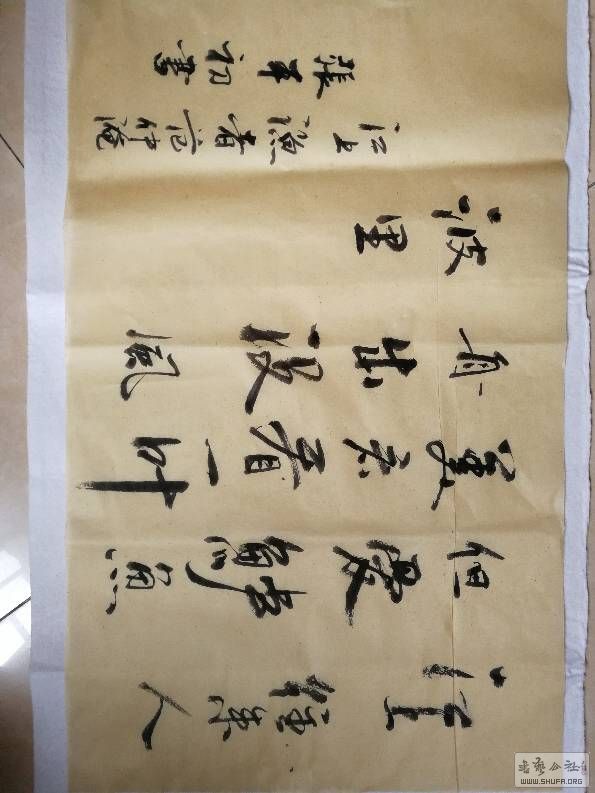 江上往来人
但爱鲈魚
美君看一叶
舟出没風
波里
江上漁者范仲淹
張初書
老藝公社
WWW.SHUFA.ORG